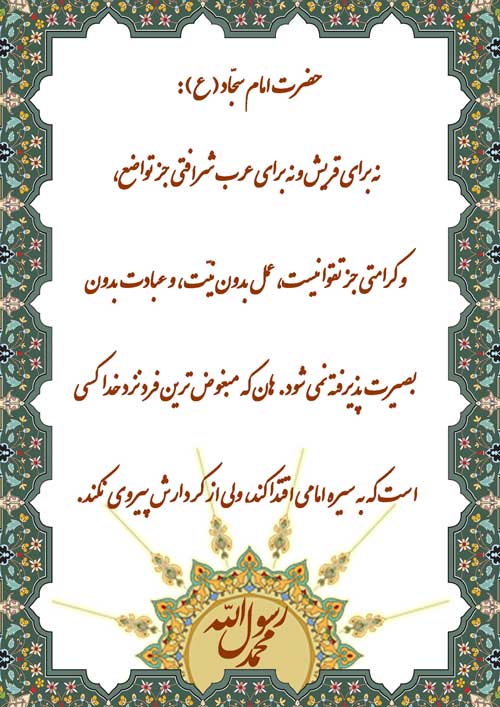 حضرت امام سجّاد (ع):
نه برای قریش و نه برای عرب شرافتی جز تواضع،
و کرامتی جز تقوا نیست، عمل بدون نیّت، و عبادت بدون
بصیرت پذیرفته نمی شود. هان که مبغوض ترین فرد نزد خدا کسی
است که به سیره امامی اقتدا کند، ولی از کردارش پیروی نکند.
محمد رسول الله